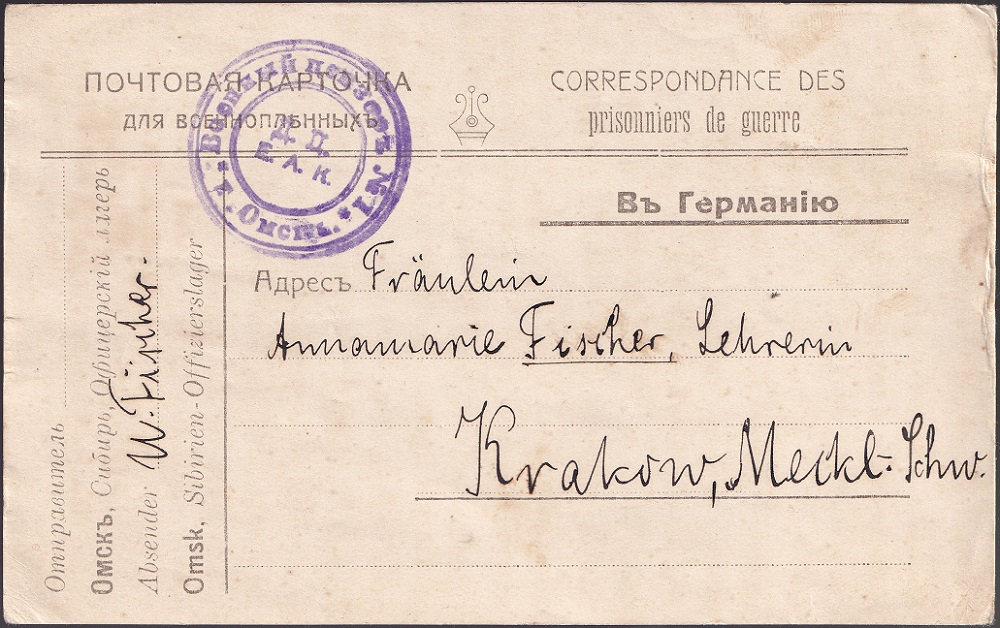 ПОЧТОВАЯ КАРТОЧКА
ДЛЯ ВОЕННОПЛѢННЫХЪ
CORRESPONDANCE DES
prisonniers de guerre
Военный цензоръ №1
г. Омскъ.
Е. А. К.
Въ Германію
Адресъ Fräulein
Annamarie Fischer, Lehrerin
Krakow, Meckl.-Schw.
Отправитель
Омскъ, Сибирь, Офицерскій лагерь
Absender W. Fischer.
Omsk, Sibirien-Offizierslager